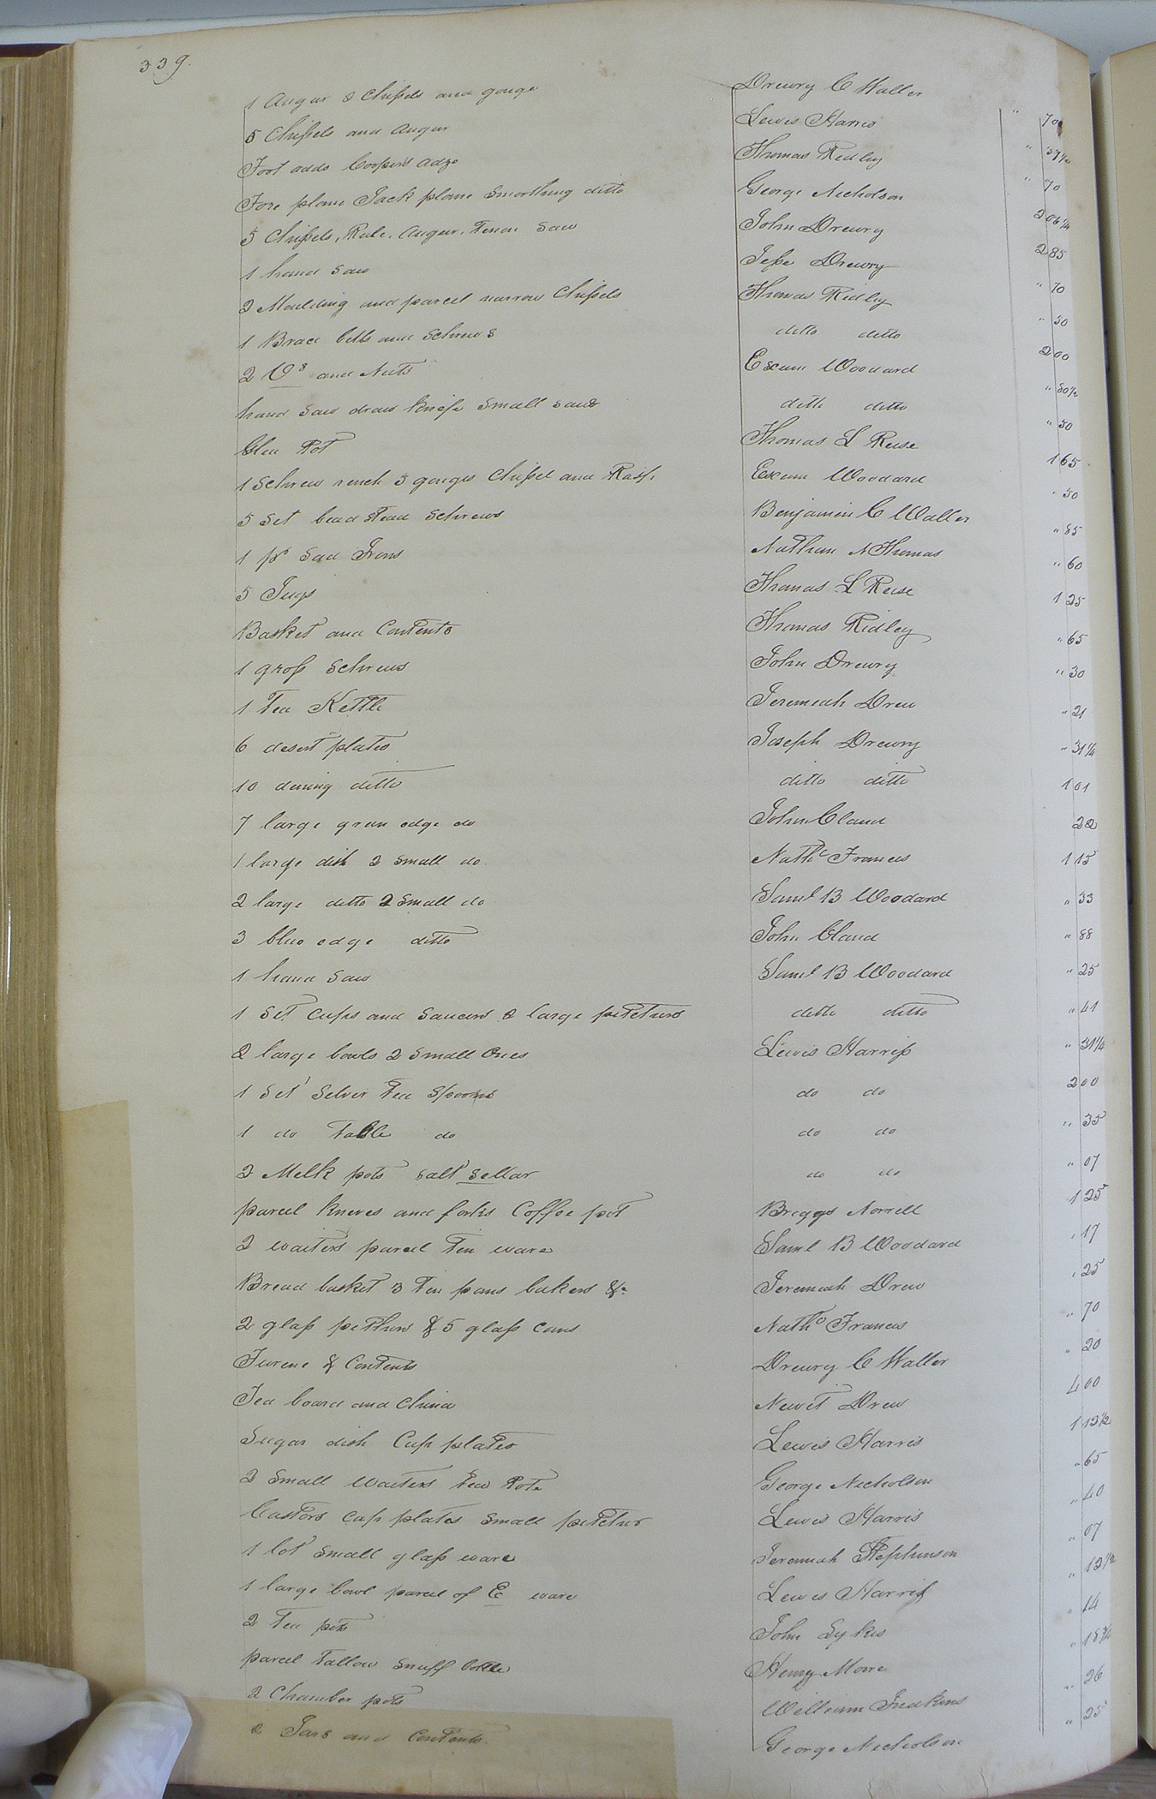 339.
1 Augur 2 Chissels and gouge Drewry C Waller " 70
5 Chissels and Augur Lewis Harris " 57½
Foot adds Coopers adze Thomas Ridley " 70
Fore plane Jack plane Smoothing ditto George Nicholson 2 06¼
5 Chissels, Rule, Augur, Tenon Saw John Drewry 2 85
1 hand Saw Jesse Drewry " 70
2 Moulding and parcel narrow Chissels Thomas Ridley " 50
1 Brace bitts and Schrews ditto ditto 2 00
2 Vs and Nuts Exum Woodard " 50½
hand Saw draw Knife Small saw ditto ditto " 50
Glue Pot Thomas L Rese 1 65
1 Schrew rench 3 gouges Chissel and Rasp. Exum Woodard " 50
5 Set bead Stead Schrews Benjamin C Waller " 85
1 pr Sad Irons Nathan N Thomas " 60
5 Jugs Thomas L Rese 1 25
Basket and Contents Thomas Ridley " 65
1 gross Schrews John Drewry " 30
1 Tea Kettle Jeremiah Drew " 21
6 desert plates Joseph Drewry " 31¼
10 dining ditto ditto ditto 1 01
7 large green edge do John Claud 22
1 large dish 2 small do. Nathl Frances 1 15
2 large ditto 2 Small do Saml B Woodard " 33
3 blue edge ditto John Claud " 88
1 hand Saw Saml B Woodard " 25
1 Set Cups and Saucers 2 large pitchers ditto ditto " 41
2 large bowls 2 Small Ones Lewis Harriss " 31¼
1 Set Selver Tea Spoons do do 2 00
1 do Table do do do " 35
2 Melk pots salt sellar do do " 07
parcel Knives and forks Coffee pot Briggs Norvell 1 25
2 waiters parcel Tin ware Saml B Woodard " 17
Bread basket 3 Tin pans bakers &c Jeremiah Drew " 25
2 glass pitchers & 5 glass cans Nathl Frances " 70
Turene & Contents Drewry C Waller " 20
Tea board and China Newit Drew 4 00
Sugar dish Cup plates Lewis Harris 1 12½
2 Small Waiters Tea Pots George Nicholson " 65
Castors Cup plates Small pitcher Lewis Harris " 40
1 lot Small glass ware Jeremiah Stephenson " 07
1 large bowl parcel of E ware Lewis Harriss " 12½
2 Tea pots John Sykes " 14
parcel Tallow Snuff bottle Henry Moore " 18¾
2 Chamber pots William Judkins " 26
2 Jars and Contents. George Nicholson " 25